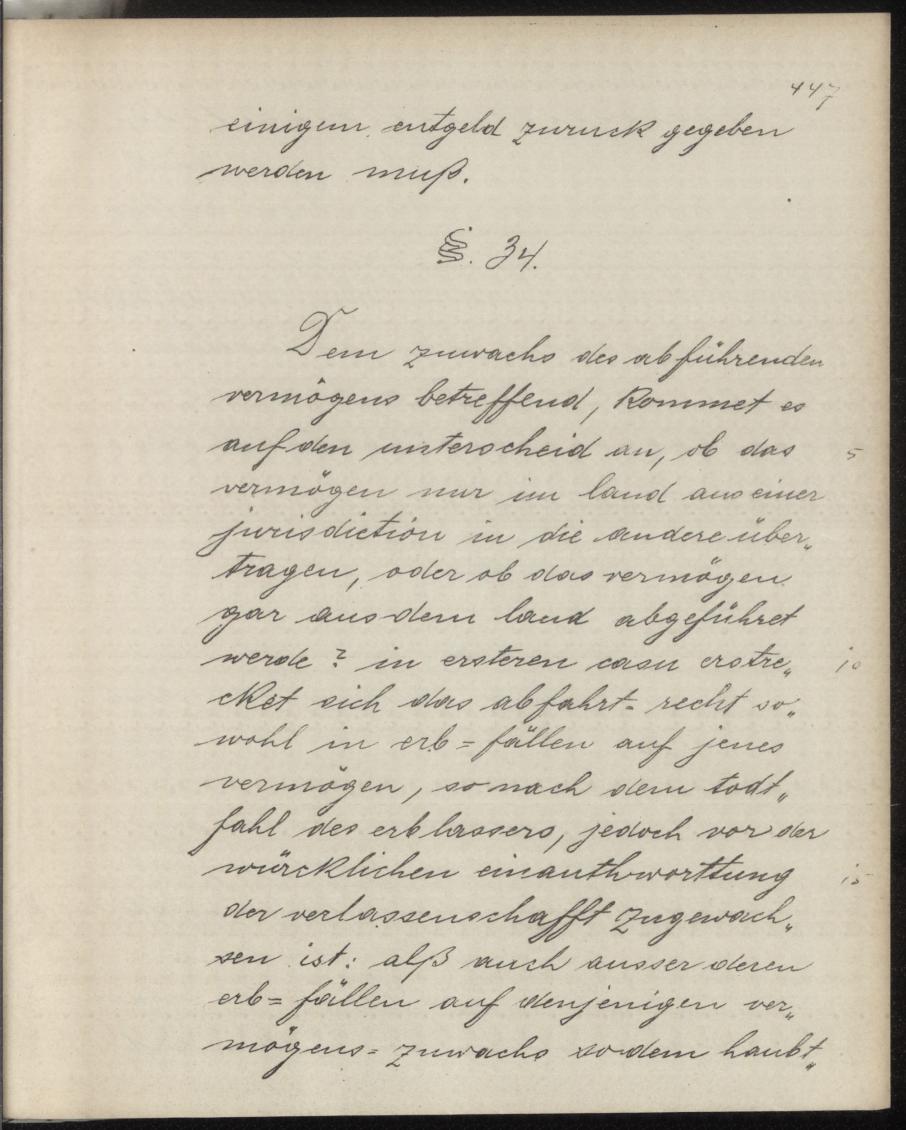 447
einigem entgeld zuruck gegeben
werden muß.
§. 34.
Dem zuwachs des abführenden
vermögens betreffend, kommet es
auf den unterscheid an, ob das 5
vermögen nur im land aus einer
jurisdiction in die andere über„
tragen, oder ob das vermögen
gar aus dem land abgeführet
werde? in ersteren casu erstre„ 10
cket sich das abfahrt= recht so„
wohl in erb= fällen auf jenes
vermögen, so nach dem todt„
fahl des erblassers, jedoch vor der
würcklichen einanthworttung 15
der verlassenschafft zugewach„
sen ist: alß auch ausser deren
erb= fällen auf denjenigen ver„
mögens= zuwachs so dem haubt„